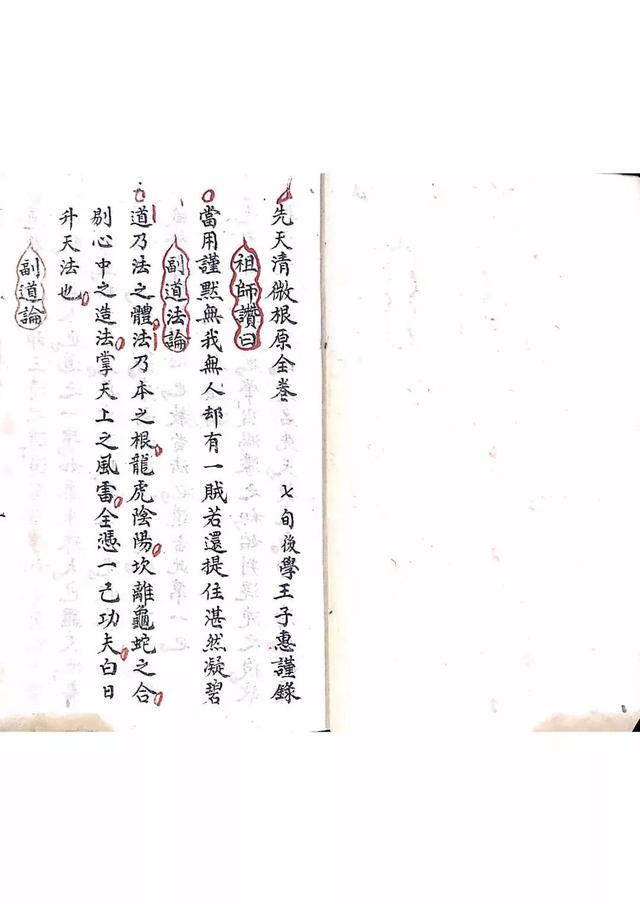 先天清微根原全卷 七旬後學王子惠謹錄
祖師讚曰
當用謹默無我無人却有一賊若還提住湛然凝碧
副道法論
道乃法之體法乃本之根龍虎陰陽坎離龜蛇之合
剔心中之造法掌天上之風雷全憑一己功夫白日
升天法也
副道論